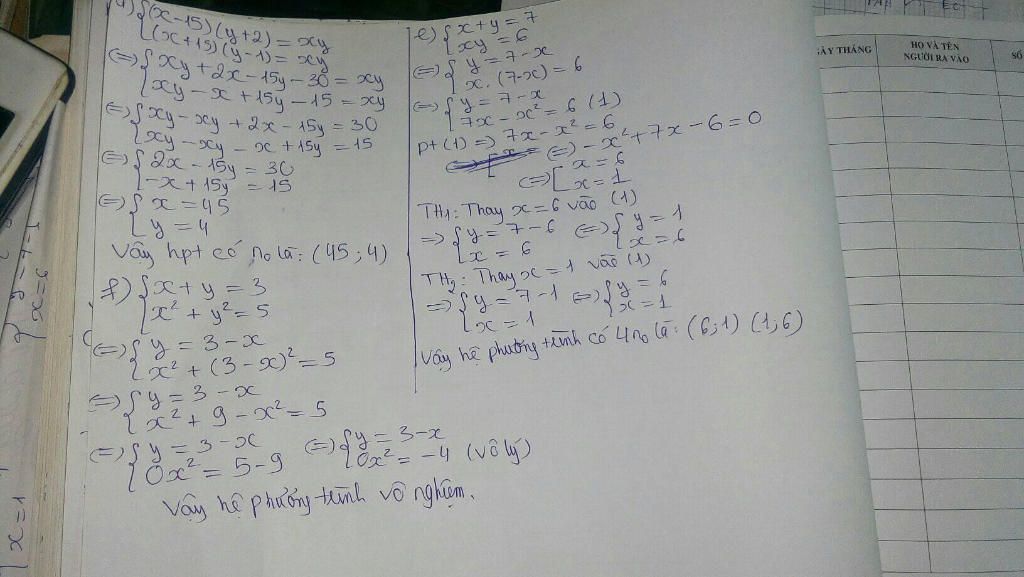 d) { (x-15)(y+2) = xy
(x+15)(y-1) = xy
(=) { xy + 2x - 15y - 30 = xy
xy - x + 15y - 15 = xy
(=) { xy - xy + 2x - 15y = 30
xy - xy - x + 15y = 15
(=) { 2x - 15y = 30
-x + 15y = 15
(=) { x = 45
y = 4
Vậy hpt có n₀ là: (45; 4)
f) { x + y = 3
x² + y² = 5
(=) { y = 3 - x
x² + (3 - x)² = 5
(=) { y = 3 - x
x² + 9 - x² = 5
(=) { y = 3 - x (=) { y = 3 - x
0x² = 5 - 9 0x² = -4 (vô lý)
Vậy hệ phương trình vô nghiệm.
e) { x + y = 7
xy = 6
(=) { y = 7 - x
x. (7-x) = 6
(=) { y = 7 - x
7x - x² = 6 (1)
pt (1) =) 7x - x² = 6
(=) - x² + 7x - 6 = 0
(=) [ x = 6
x = 1
TH₁: Thay x = 6 vào (1)
=) { y = 7 - 6 (=) { y = 1
x = 6 x = 6
TH₂: Thay x = 1 vào (1)
=) { y = 7 - 1 (=) { y = 6
x = 1 x = 1
Vậy hệ phương trình có 4 n₀ là: (6; 1) (1; 6)
x = 6
x = 1
GÀY THÁNG
HỌ VÀ TÊN
NGƯỜI RA VÀO
SỐ